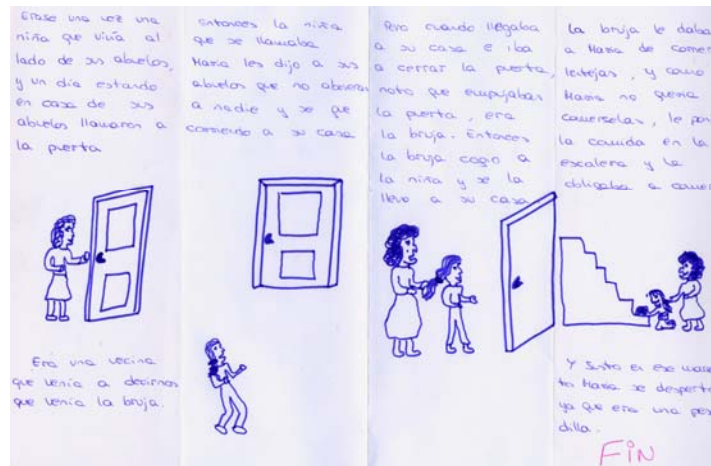 Erase una vez una
niña que vivía al
lado de sus abuelos,
y un día estando
en casa de sus
abuelos llamaron a
la puerta
Era una vecina
que venia a decirnos
que venia la bruja.
Entonces la niña
que se llamaba
Maria les dijo a sus
abuelos que no abrieran
a nadie y se fue
corriendo a su casa
Pero cuando llegaba
a su casa e iba
a cerrar la puerta,
noto que empujaban
la puerta, era
la bruja. Entonces
la bruja cogio a
la niña y se la
llevo a su casa
La bruja le daba
a Maria de comer
lentejas, y como
Maria no queria
comerselas, le pon
la comida en la
escalera y la
obligaba a comer
Y Justo en ese mom
to Maria se desperto
ya que era una pesa
dilla.
FiN